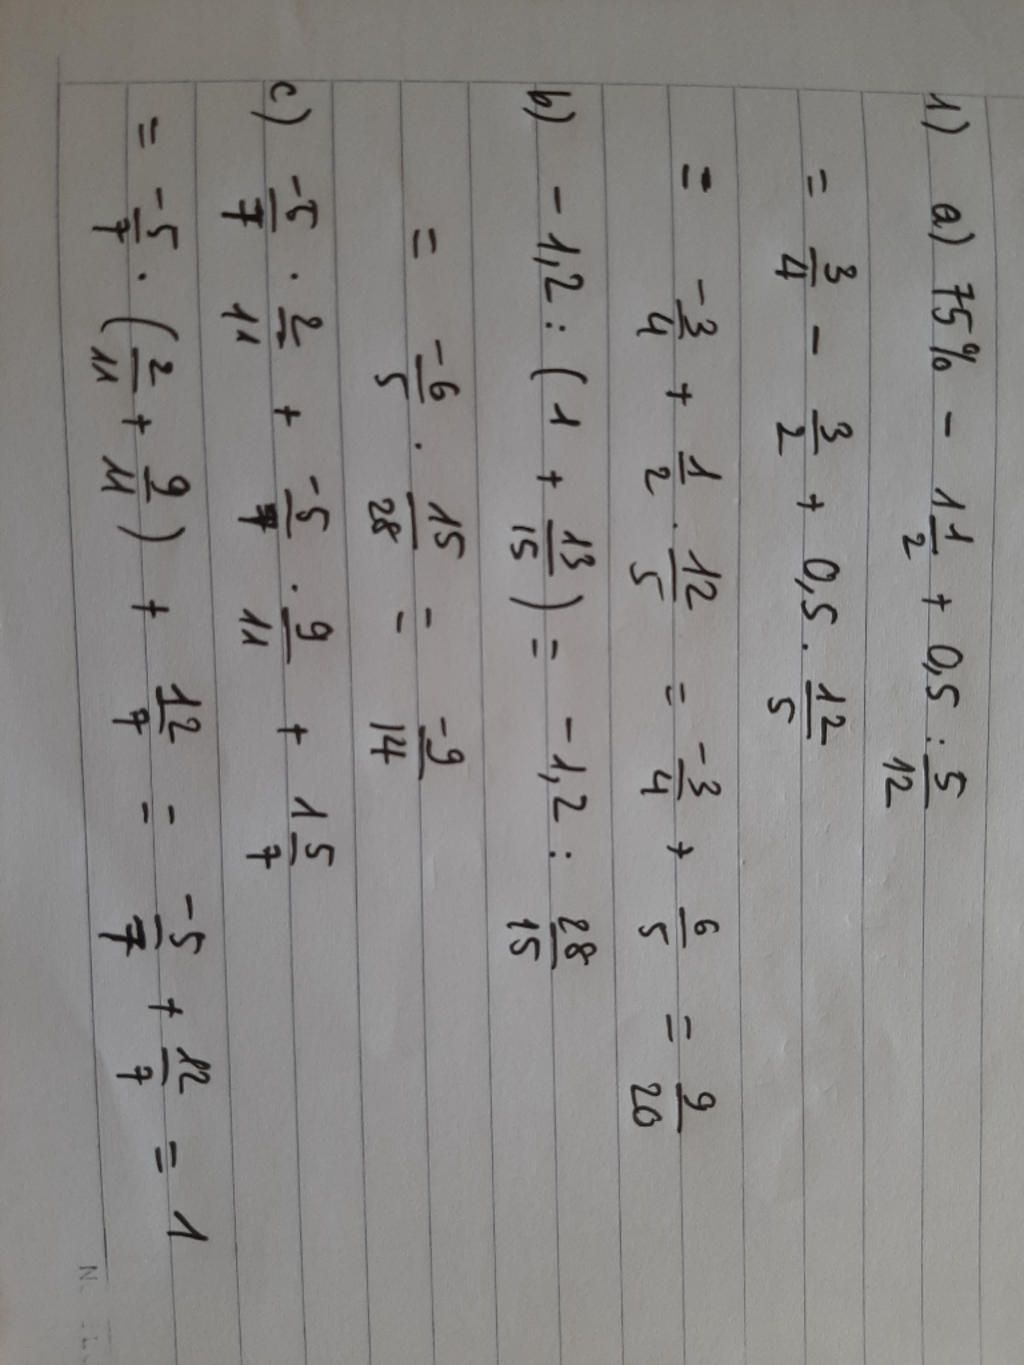 1) a) 75% - 1 1/2 + 0,5 : 5/12
= 3/4 - 3/2 + 0,5 . 12/5
= -3/4 + 1/2 . 12/5 = -3/4 + 6/5 = 9/20
b) -1,2 : (1 + 13/15) = -1,2 : 28/15
= -6/5 . 15/28 = -9/14
c) -5/7 . 2/11 + -5/7 . 9/11 + 1 5/7
= -5/7 . (2/11 + 9/11) + 12/7 = -5/7 + 12/7 = 1